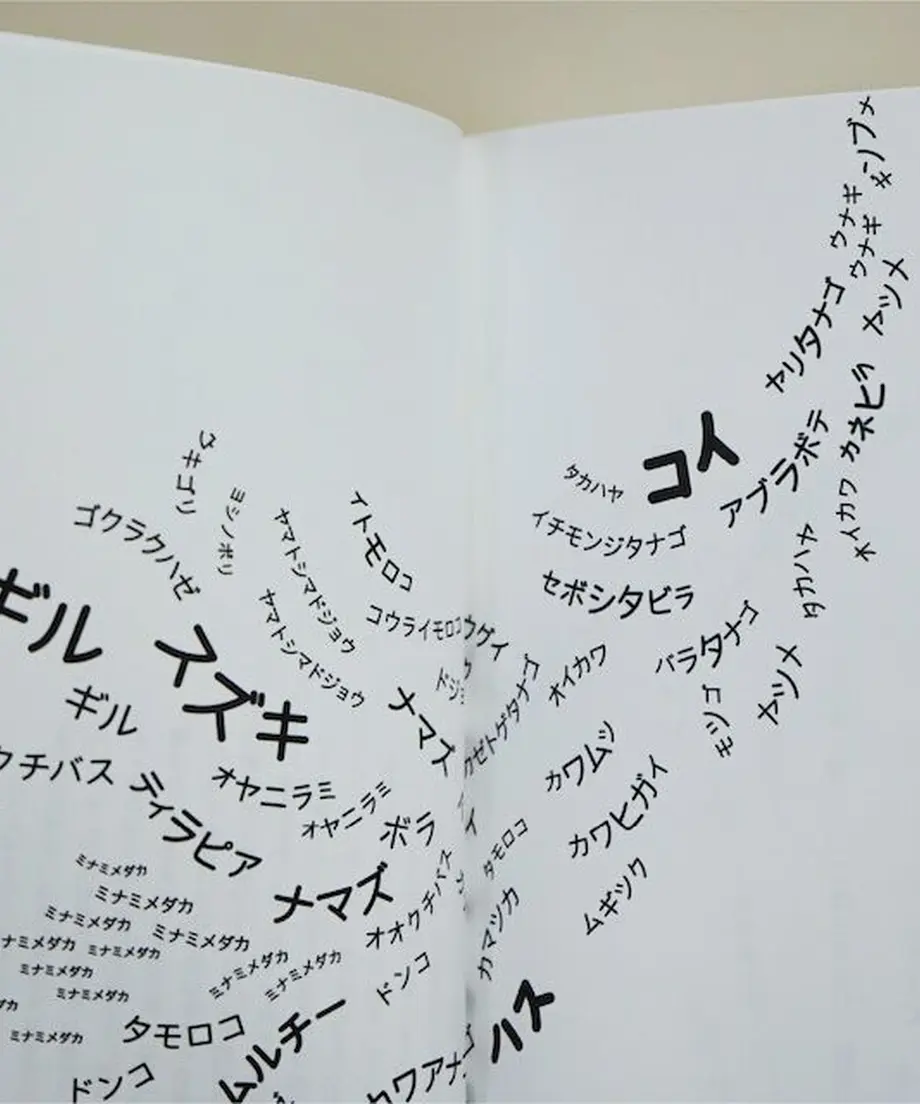 ウキゴリ
ヨシノボリ
ゴクラクハゼ
ヤマトシマドジョウ
イトモロコ
ヤマトシマドジョウ
コウライモロコ
ギル
スズキ
ギル
ナマズ
クチバス
ティラピア
オヤニラミ
オヤニラミ
ボラ
ミナミメダカ
ミナミメダカ
ナマズ
オオクチバス
ミナミメダカ
ミナミメダカ
ナミメダカ
ミナミメダカ
ミナミメダカ
ミナミメダカ
ミナミメダカ
ミナミメダカ
ミナミメダカ
ドンコ
タモロコ
ムルチー
ドンコ
カワアナ
ウナギ
ウナギ
ヤツメ
ヤリタナゴ
カネヒラ
コイ
アブラボテ
タカハヤ
イチモンジタナゴ
オイカワ
セボシタビラ
タカハヤ
ウグイ
バラタナゴ
オイカワ
カゼトゲタナゴ
モツゴ
ヤツメ
カワムツ
カワヒガイ
タモロコ
ムギツク
カマツカ
ハス